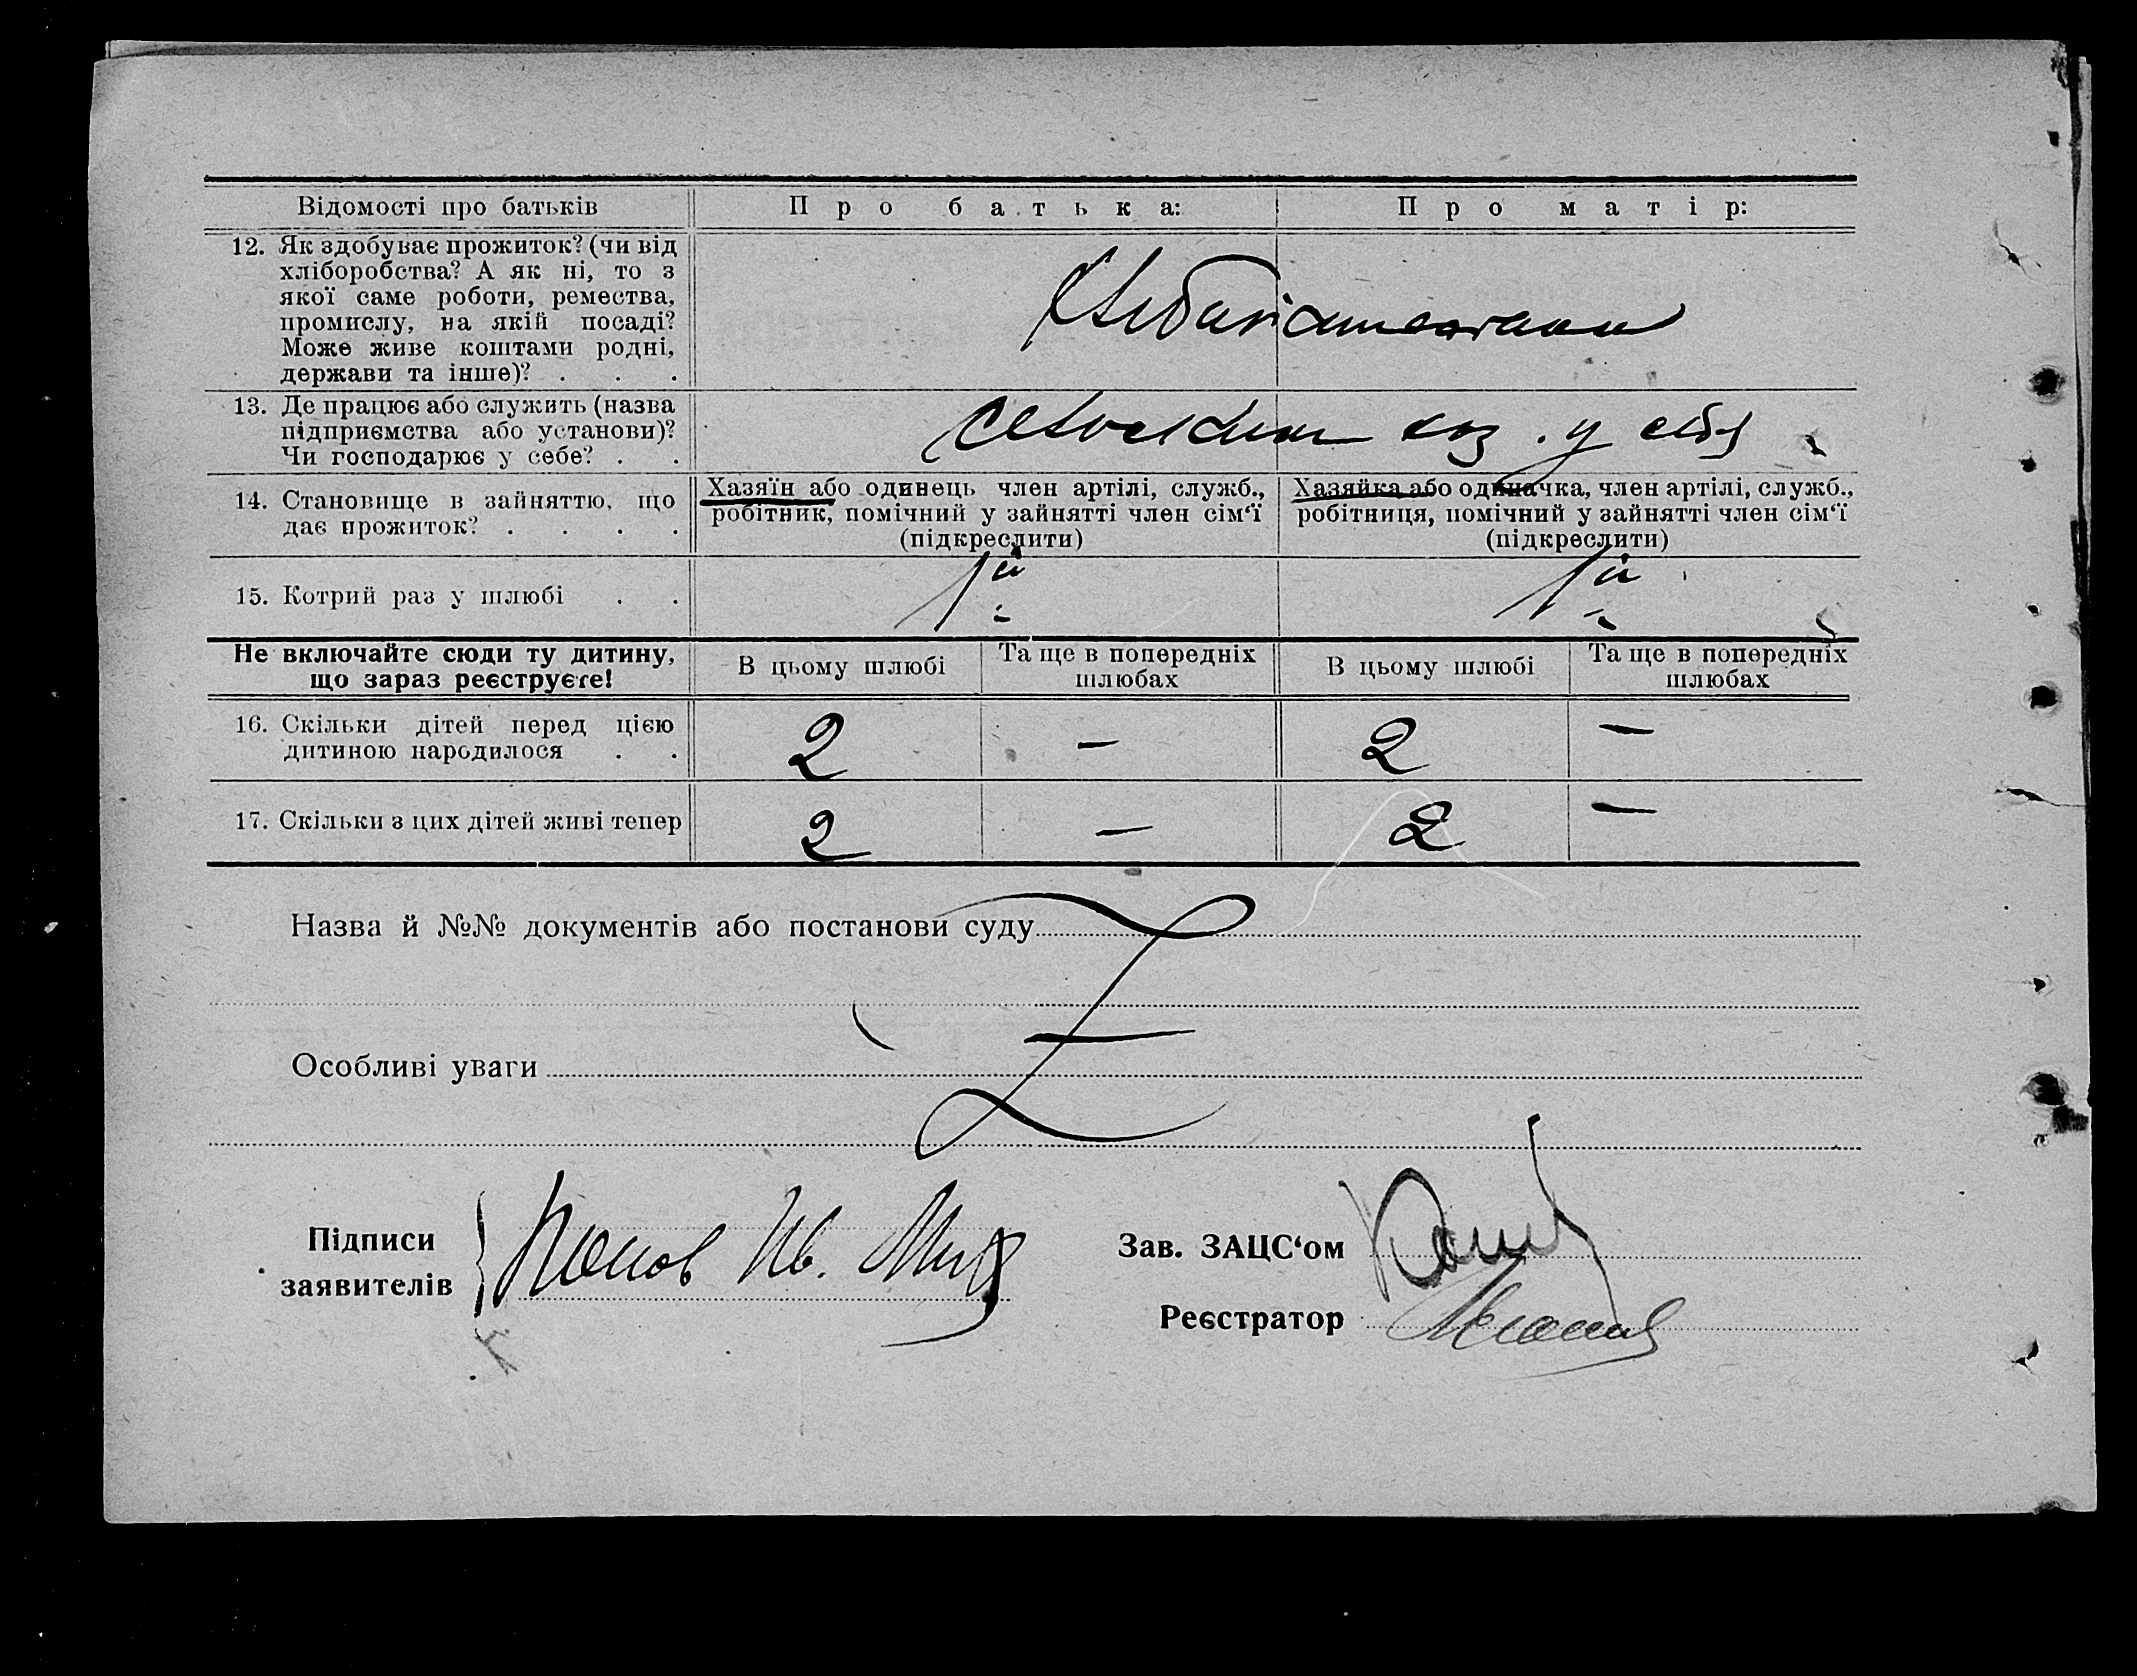 Відомості про батьків
Про батька:
Про матір:
12. Як здобуває прожиток? (чи від
хліборобства? А як ні, то з
якої саме роботи, ремества,
промислу, на якій посаді?
Може живе коштами родні,
держави та інше)? . . .
13. Де працює або служить (назва
підприємства або установи)?
Чи господарює у себе? . .
у себя
14. Становище в зайняттю, що
дає прожиток? . . . .
Хазяїн або одинець член артілі, служб.,
робітник, помічний у зайнятті член сім‘ї
(підкреслити)
Хазяйка або одиначка, член артілі, служб.,
робітниця, помічний у зайнятті член сім‘ї
(підкреслити)
15. Котрий раз у шлюбі . .
1й
1й
Не включайте сюди ту дитину,
що зараз реєструєте!
В цьому шлюбі
Та ще в попередніх
шлюбах
В цьому шлюбі
Та ще в попередніх
шлюбах
16. Скільки дітей перед цією
дитиною народилося . .
2
—
2
—
17. Скільки з цих дітей живі тепер
2
—
2
—
Назва й №№ документів або постанови суду
Особливі уваги
Підписи
заявителів
Попов Ив.
Зав. ЗАЦС‘ом
Реєстратор